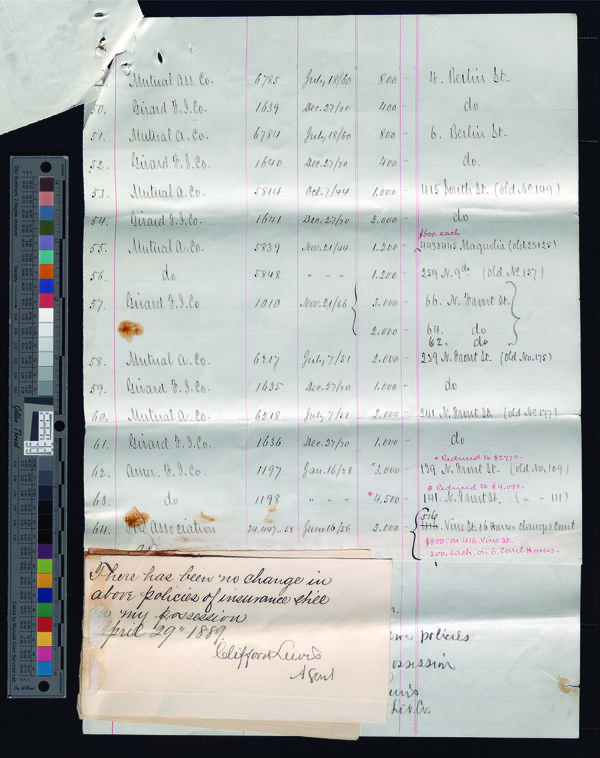 Mutual Ass. Co. 6785 July 18/60 800 - 4. Berlin St.
50. Girard F. I. Co. 1639 Dec. 27/70 400 - do
51. Mutual A. Co. 6784 July 18/60 800 - 6. Berlin St.
52. Girard F. I. Co. 1640 Dec. 27/70 400 - do
53. Mutual A. Co. 5814 Oct. 7/44 1,000 - 415 South St. (Old No 149)
54. Girard F. I. Co. 1641 Dec. 27/70 2.000 - do
$600. each
55. Mutual A. Co. 5839 Nov. 21/44 1.200 - 443 & 445 Magnolia (Old 23 & 25)
56. do 5848 " " " 1.200 - 259 N. 9th (Old No 157)
57. Girard F. I. Co 1010 Nov. 21/66 3,000 - 66. N. Front St.
2.000 - 64. do
62. do
58. Mutual A. Co. 6217 July 7/51 2,000 - 239 N. Front St. (Old No. 175)
59. Girard F. I. Co. 1635 Dec. 27/70 1,000 - do
60. Mutual A. Co. 6218 July 7/51 2,000 - 241 N. Front St. (Old No. 177)
61. Girard F. I. Co. 1636 Dec. 27/70 1,000 - do
+ Reduced to $2770.
62. Amer. F. I. Co. 1197 Jan. 16/28 3,000 - 139 N. Front St. (Old No. 109)
Reduced to $4.098.
63. do 1198 " " " 4,500 - 141 N. Front St. ( " " 111)
516
64. Association 24,447-53 June 16/56 2.000 - 416. Vine St. & 6 Houses Court
$800. on 416. Vine St.
200. each. on 6. Court Houses -
There has been no change in
above policies of insurance still
my possession
pril 29" 1889
Clifford Lewis
Agent
policies
ossession